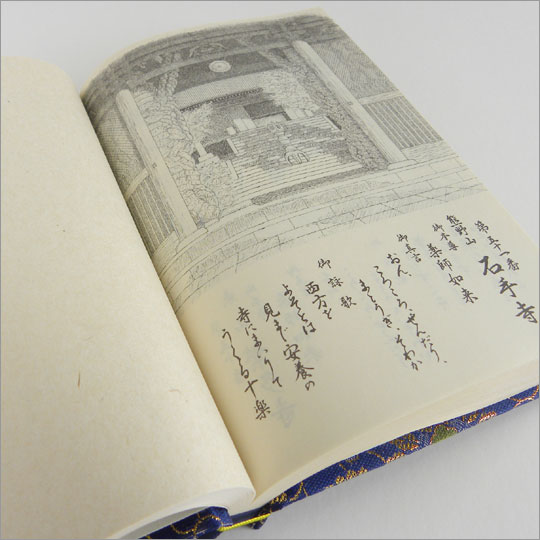 第五十一番 石手寺
熊野山
御本尊 薬師如来
御真言
おん、ころころ、せんだり、
まとうぎ、そわか
御詠歌
西方を
よそとは
見まじ安養の
寺にまいりて
うくる十楽